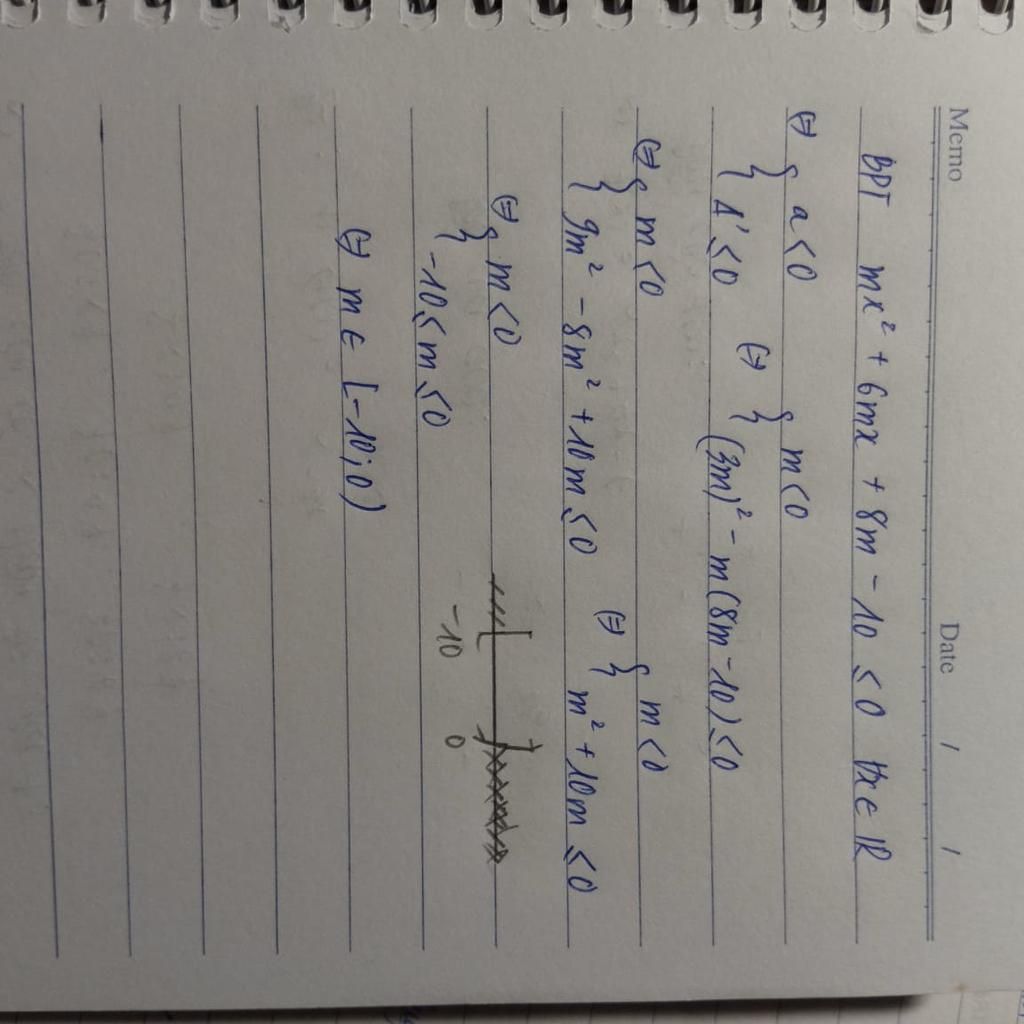 Memo Date / /
BPT mx² + 6mx + 8m - 10 ≤ 0 ∀x∈ℝ
⇔ { a<0
Δ' ≤ 0 ⇔ { m<0
(3m)² - m(8m - 10) ≤ 0
⇔ { m<0
9m² - 8m² + 10m ≤ 0 ⇔ { m<0
m² + 10m ≤ 0
⇔ { m<0
-10 ≤ m ≤ 0
-10 0
⇔ m ∈ [-10;0)